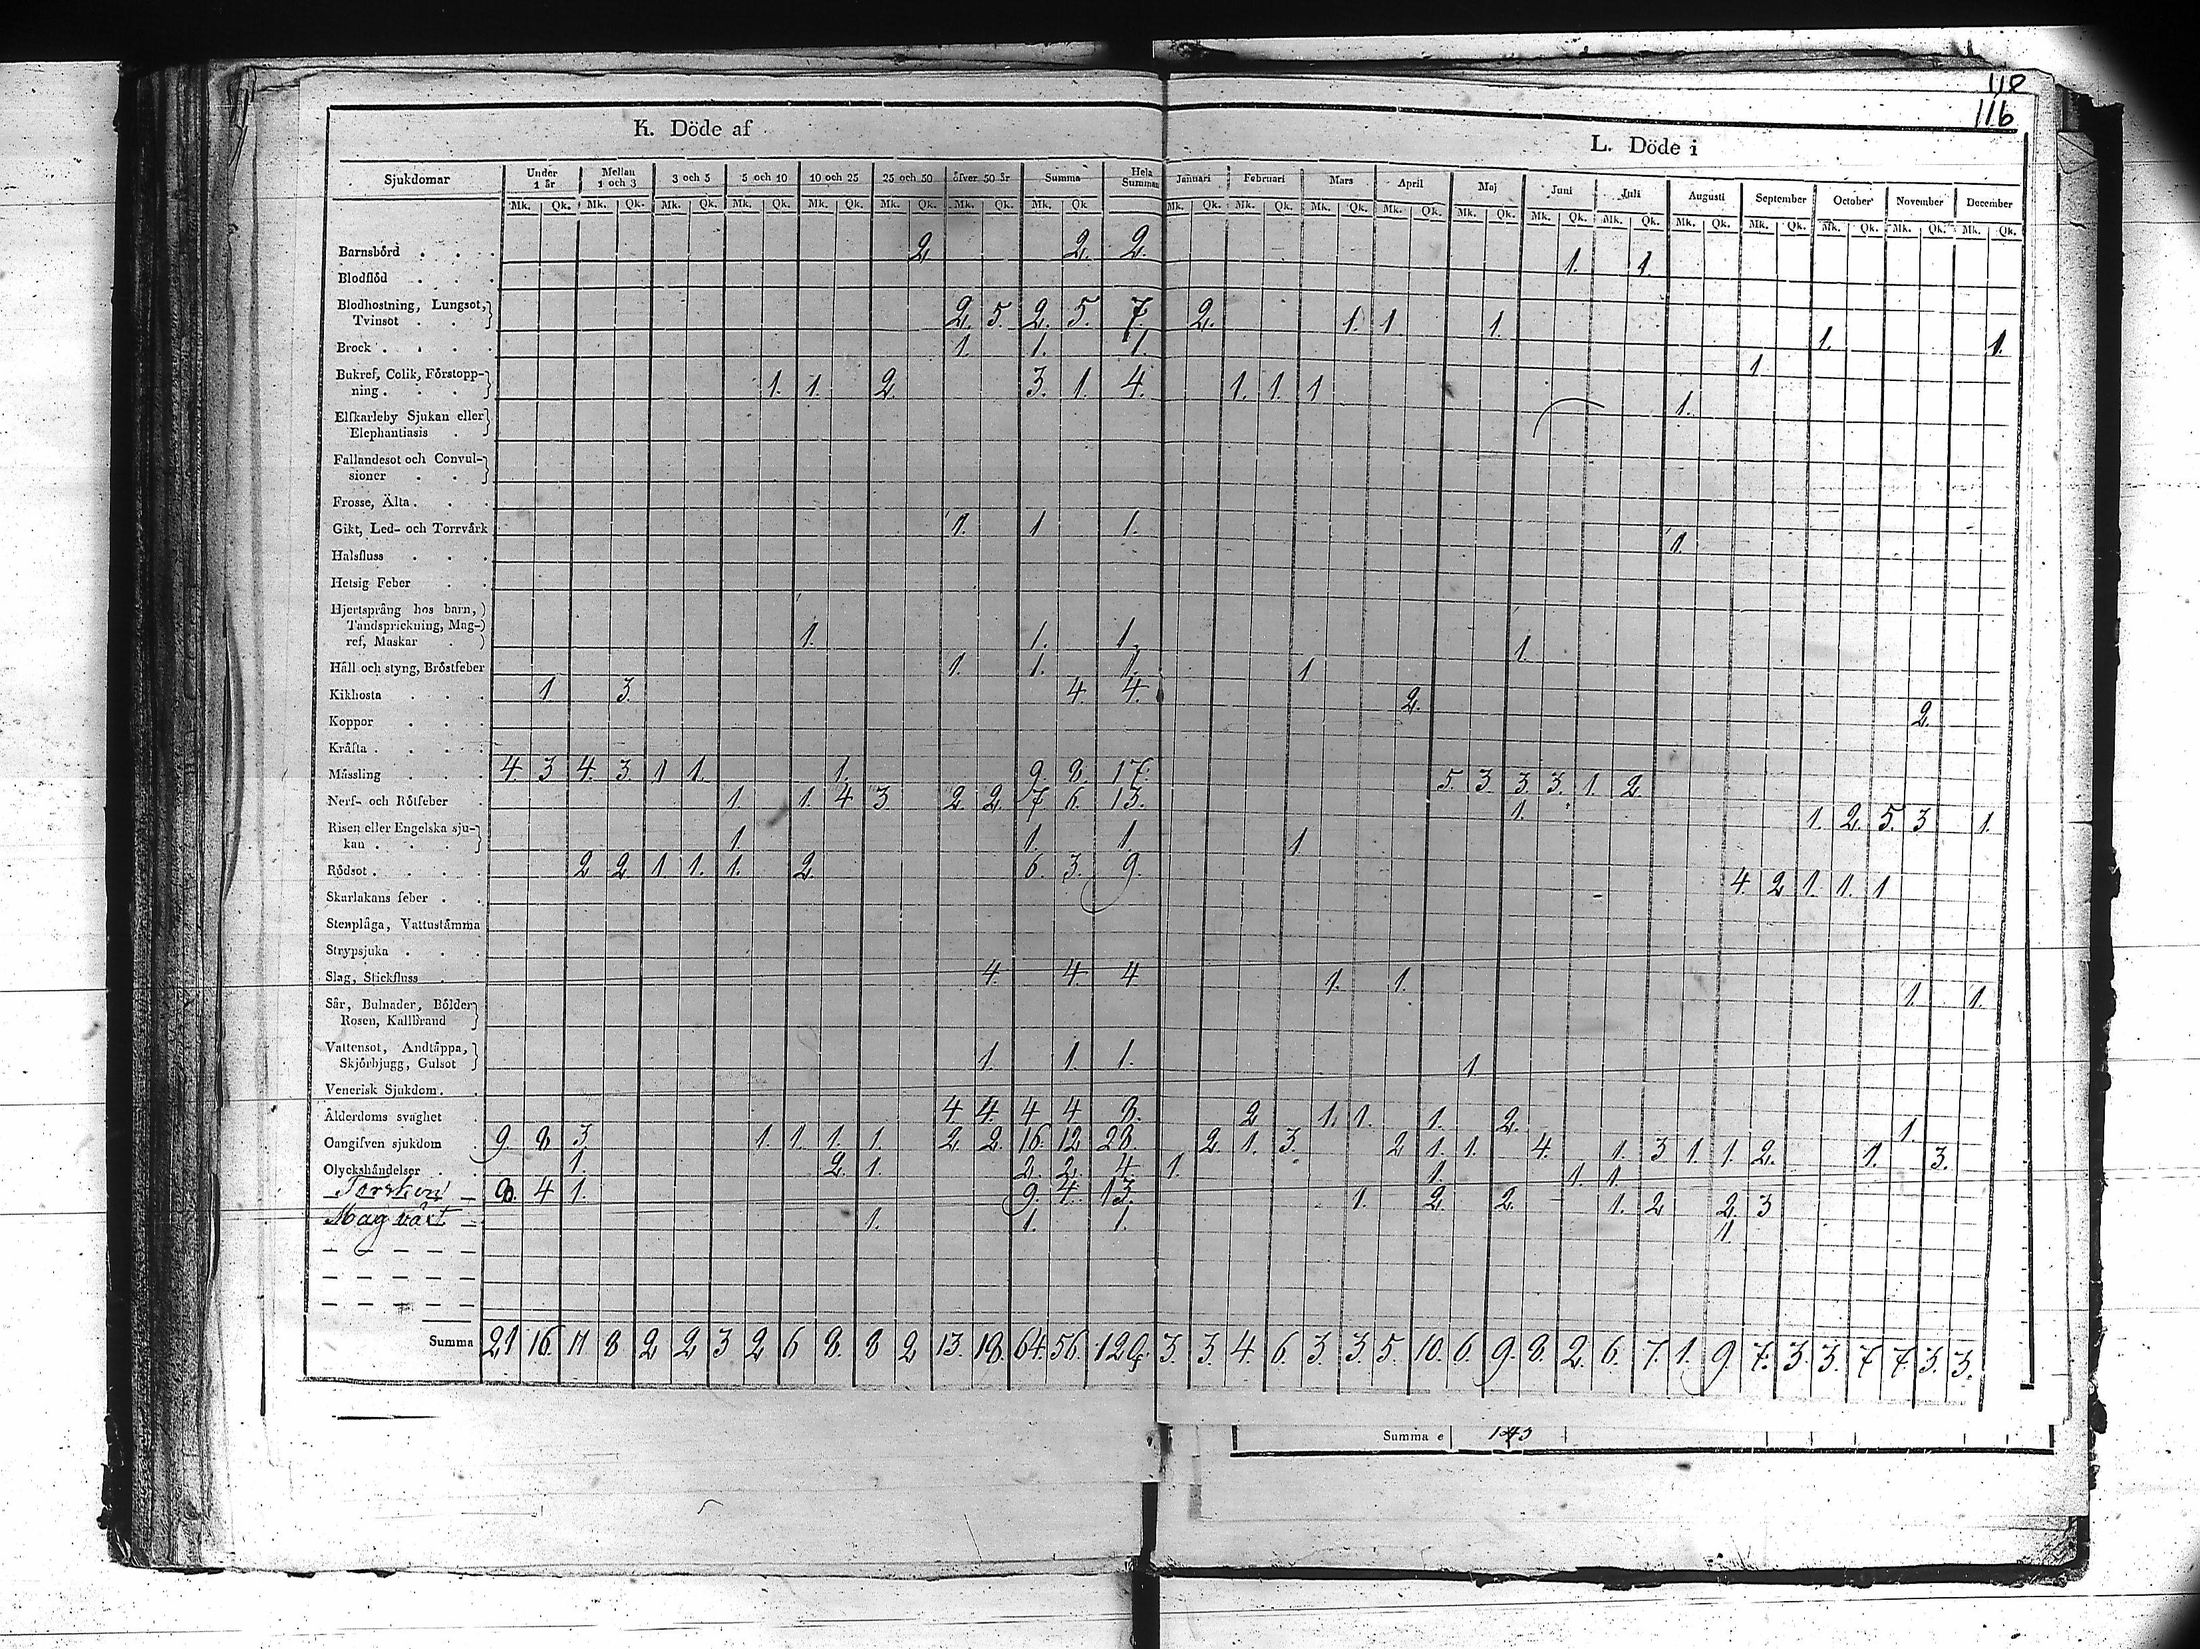 118
116
K. Döde af
L. Döde i
Sjukdomar | Under 1 år | Mellan 1 och 3 | 3 och 5 | 5 och 10 | 10 och 25 | 25 och 50 | öfver 50 år | Summa | Hela Summan | Januari | Februari | Mars | April | Maj | Juni | Juli | Augusti | September | October | November | December
Mk. Qk. Mk. Qk. Mk. Qk. Mk. Qk. Mk. Qk. Mk. Qk. Mk. Qk. Mk. Qk. Mk. Qk. Mk. Qk. Mk. Qk. Mk. Qk. Mk. Qk. Mk. Qk. Mk. Qk. Mk. Qk. Mk. Qk. Mk. Qk. Mk. Qk. Mk. Qk.
Barnsbörd . . . 2 2. 2. 1. 1
Blodflöd . . .
Blodhostning, Lungsot,
Tvinsot . . 2. 5. 2. 5. 7. 2. 1. 1. 1. 1. 1.
Brock . . . . 1. 1. 1. 1
Bukref, Colik, Förstopp-
ning . . . 1. 1. 2. 3. 1. 4. 1. 1. 1 1.
Elfkarleby Sjukan eller
Elephantiasis .
Fallandesot och Convul-
sioner . .
Frosse, Älta . . .
Gikt, Led- och Torrvärk 1. 1 1. 1.
Halsfluss . . .
Hetsig Feber . .
Hjertsprång hos barn,
Tandsprickning, Mag-
ref, Maskar . 1. 1. 1. 1.
Håll och styng, Bröstfeber 1. 1. 1. 1
Kikhosta . . . 1. 3. 4. 4. 2. 2.
Koppor . . .
Kräfta . . . .
Mässling . . . 4 3 4. 3. 1 1. 1. 9. 8. 17. 5. 3 3. 3. 1. 2.
Nerf- och Rötfeber . 1. 1. 4 3 2 2. 7 6. 13. 1. 1. 2. 5. 3 1.
Risen eller Engelska sju-
kan . . . 1. 1. 1. 1
Rödsot . . . . 2 2. 1 1. 1. 2. 6. 3. 9. 4. 2 1. 1. 1
Skarlakans feber . .
Stenplåga, Vattustämma
Strypsjuka . . .
Slag, Stickfluss . 4. 4. 4 1. 1. 1. 1.
Sår, Bulnader, Bölder
Rosen, Kallbrand
Vattensot, Andtäppa,
Skjörbjugg, Gulsot 1. 1 1. 1
Venerisk Sjukdom . .
Ålderdoms svaghet . 4 4. 4 4 8. 2 1. 1. 1. 2. 1
Oangifven sjukdom . 9. 8 3. 1. 1. 1. 1. 2. 2. 16. 12 28. 2. 1. 3. 2 1. 1. 4. 1. 3 1. 1. 2. 1. 3.
Olyckshändelser . . 1. 2. 1. 2. 2. 4. 1. 1. 1. 1.
Torsken 8. 4 1. 9. 4. 13. 1. 2. 2. 1. 2 2. 3
Magvärk 1. 1. 1. 1
Summa 21 16. 11 8 2 2 3 2 6 8. 8 2 13. 18. 64. 56. 120. 3. 3. 4. 6. 3. 3. 5. 10. 6. 9. 8. 2. 6. 7. 1. 9 7. 3. 3. 7 7. 3. 3.
Summa e 143